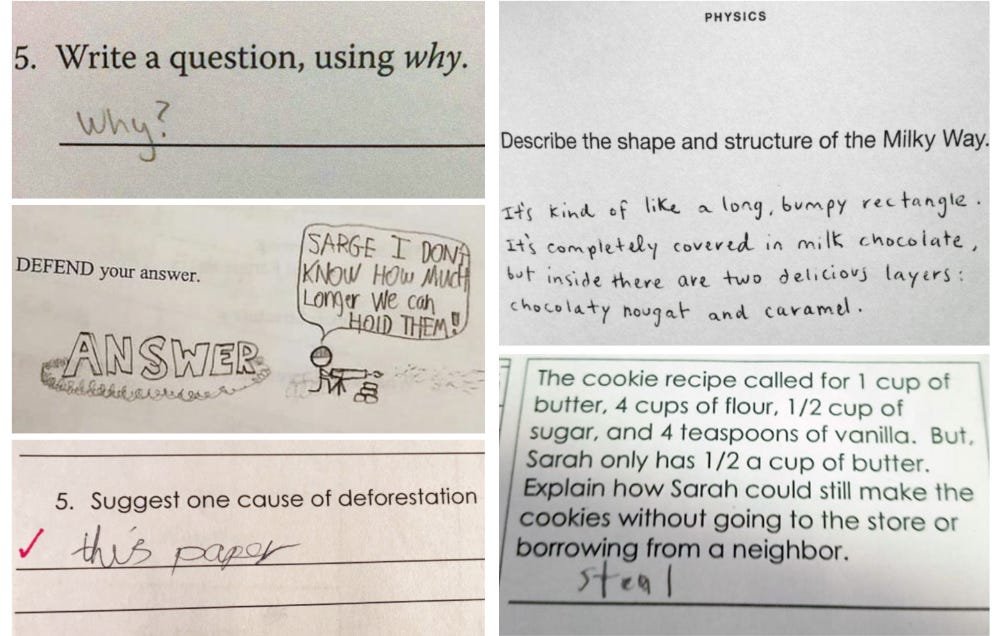 5. Write a question, using why.
why?
DEFEND your answer.
SARGE I DON'T
KNOW HOW Much
Longer We can
HOLD THEM!!
ANSWER
5. Suggest one cause of deforestation
✓ this paper
PHYSICS
Describe the shape and structure of the Milky Way.
It's kind of like a long, bumpy rectangle.
It's completely covered in milk chocolate,
but inside there are two delicious layers:
chocolaty nougat and caramel.
The cookie recipe called for 1 cup of
butter, 4 cups of flour, 1/2 cup of
sugar, and 4 teaspoons of vanilla. But,
Sarah only has 1/2 a cup of butter.
Explain how Sarah could still make the
cookies without going to the store or
borrowing from a neighbor.
steal